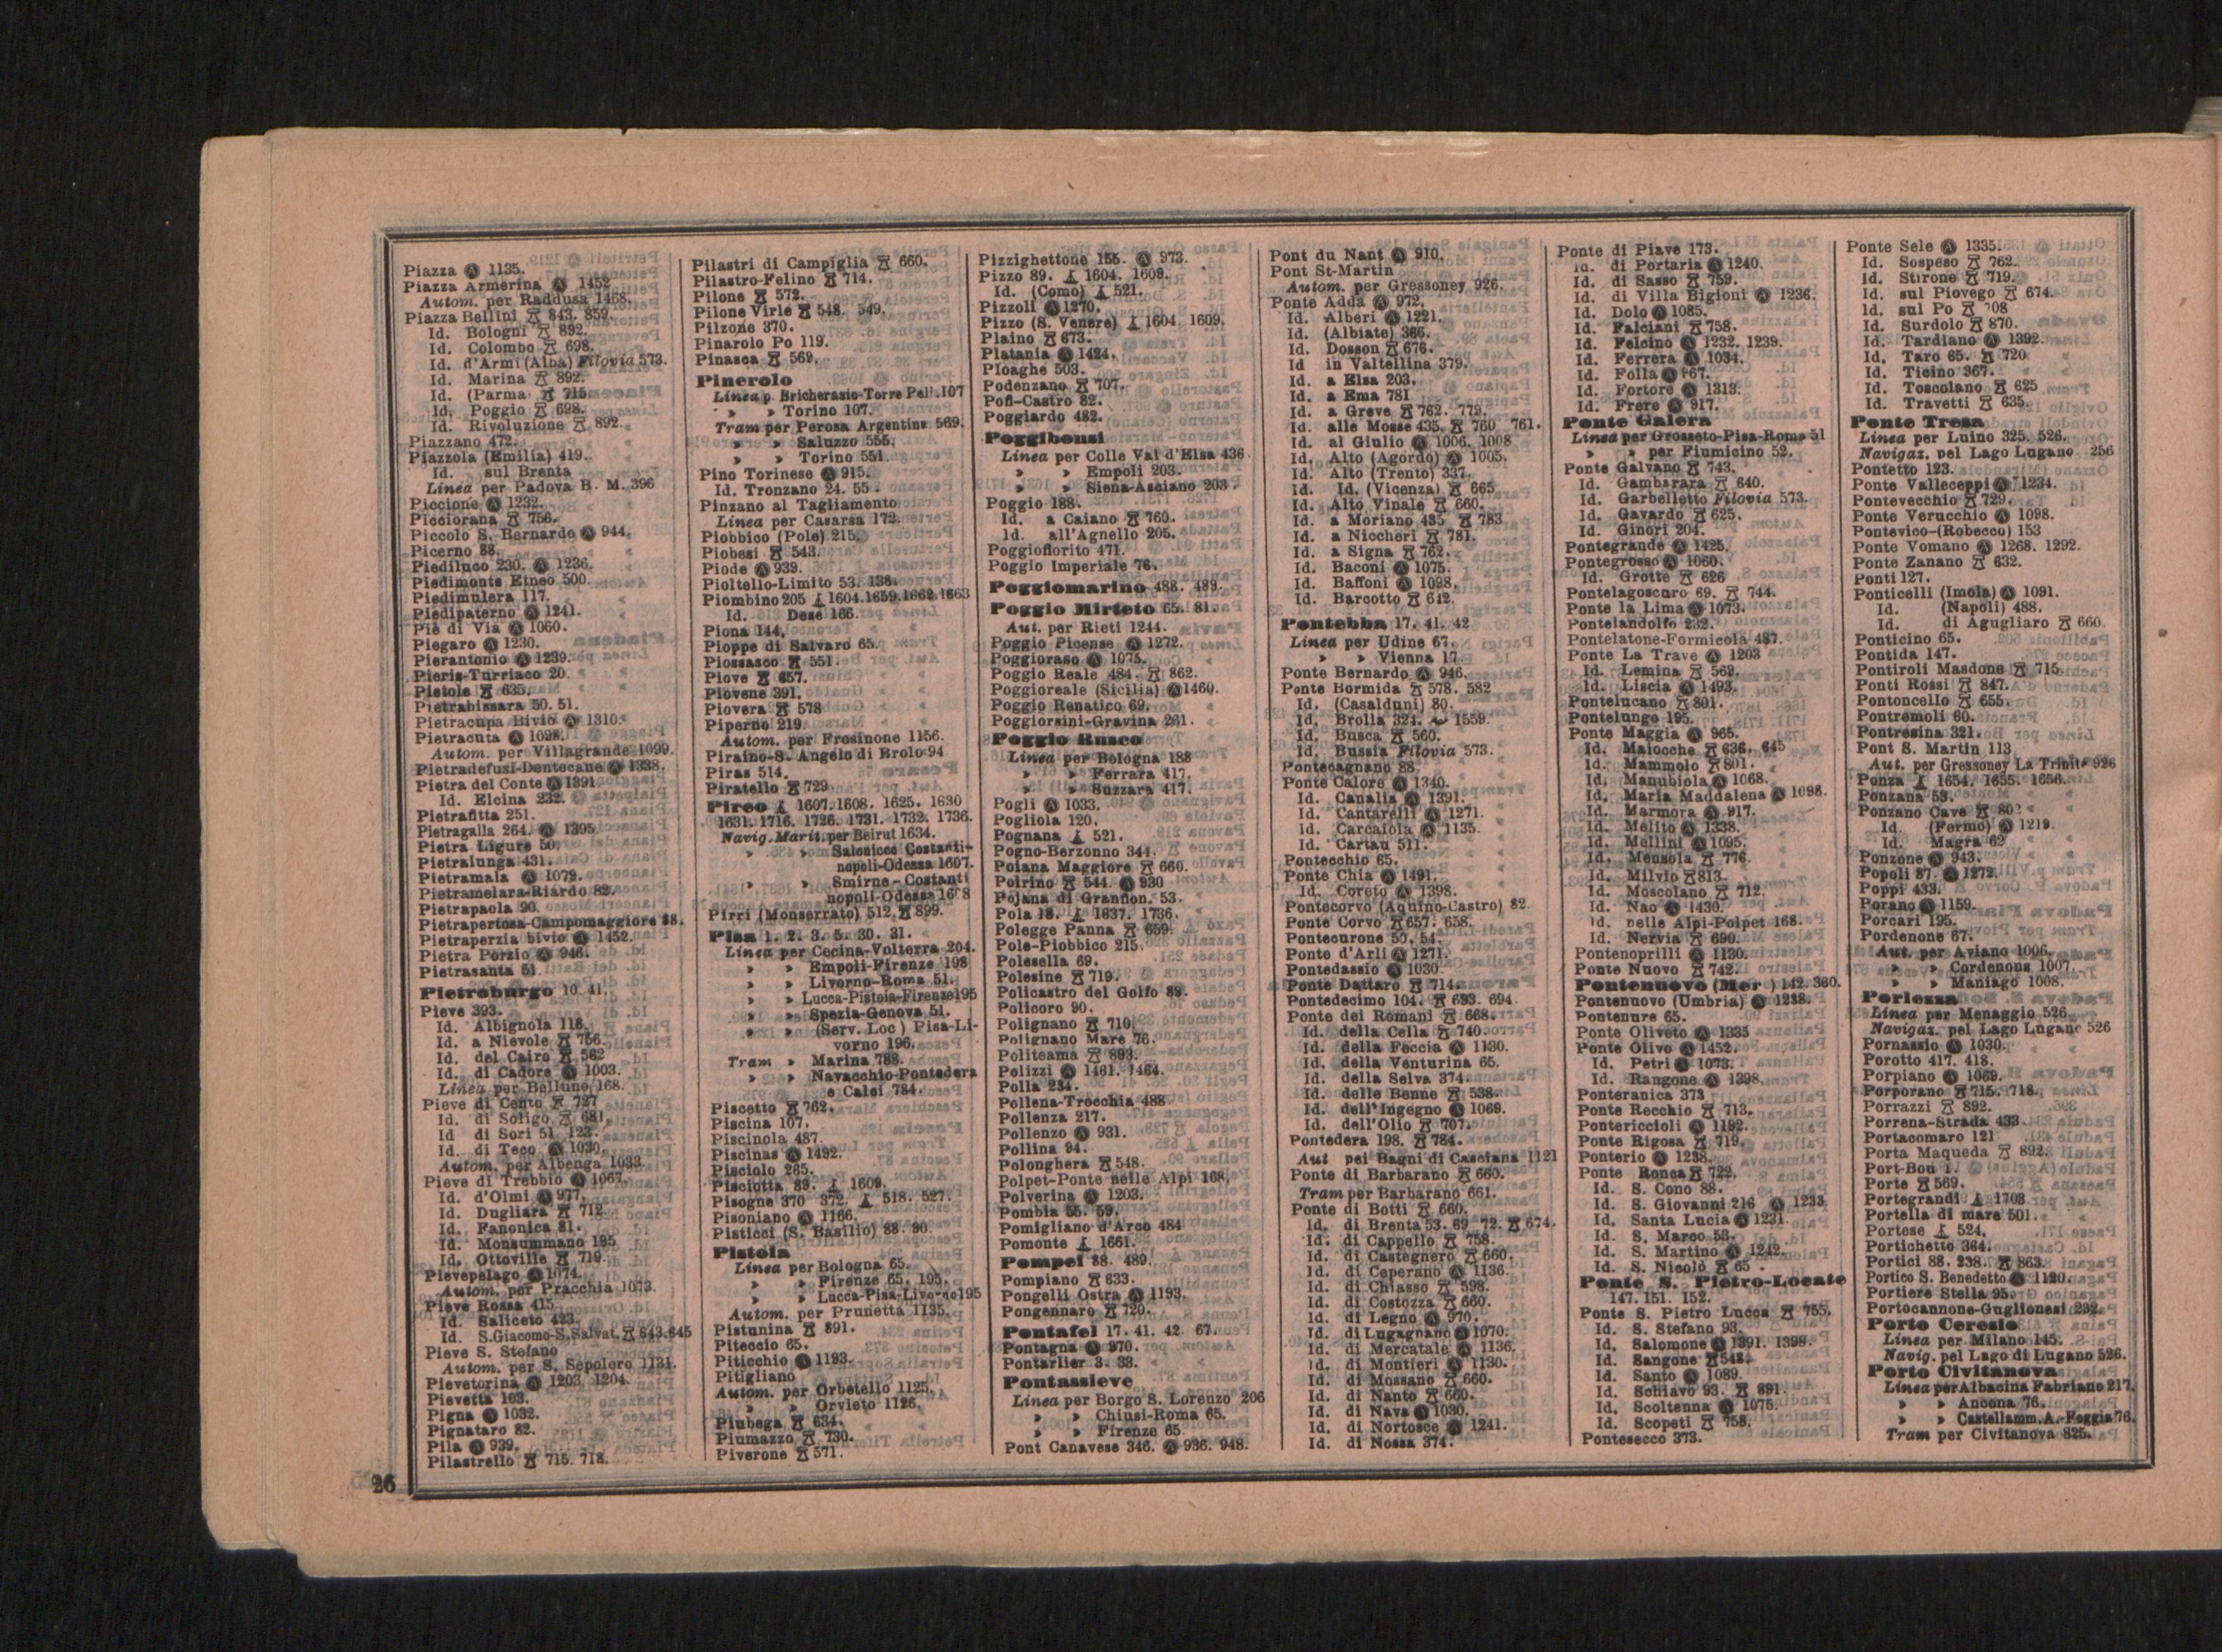 Piazza 1135.
Piazza Armerina 1452
Autom. per Raddusa 1468.
Piazza Bellini 843. 859.
Id. Bologni 892.
Id. Colombo 698.
Id. d'Armi (Alba) Filovia 573.
Id. Marina 892.
Id. (Parma 715.
Id. Poggio 698.
Id. Rivoluzione 892.
Piazzano 472.
Piazzola (Emilia) 419.
Id. sul Brenta
Linea per Padova B. M. 396
Piccione 1232.
Picciorana 756.
Piccolo S. Bernardo 944.
Picerno 88.
Piediluco 230. 1236.
Piedimonte Etneo 500.
Piedimulera 117.
Piedipaterno 1241.
Piè di Via 1060.
Piegaro 1230.
Pierantonio 1239.
Pieris-Turriaco 20.
Pietole 635.
Pietrabissara 50. 51.
Pietracupa Bivio 1310.
Pietracuta 1098.
Autom. per Villagrande 1099.
Pietradefusi-Dentecane 1338.
Pietra del Conte 1391
Id. Elcina 232.
Pietrafitta 251.
Pietragalla 264. 1395.
Pietra Ligure 50.
Pietralunga 431.
Pietramala 1079.
Pietramelara-Riardo 82.
Pietrapaola 90.
Pietrapertosa-Campomaggiore 88.
Pietraperzia bivio 1452.
Pietra Porzio 946.
Pietrasanta 51
Pietroburgo 10. 41.
Pieve 393.
Id. Albignola 118.
Id. a Nievole 756.
Id. del Cairo 582
Id. di Cadore 1003.
Linea per Belluno 168.
Pieve di Cento 727
Id. di Soligo 681.
Id di Sori 51. 123.
Id. di Teco 1030.
Autom. per Albenga 1033.
Pieve di Trebbio 1067.
Id. d'Olmi 977.
Id. Dugliara 712
Id. Fanonica 81.
Id. Monsummano 195
Id. Ottoville 719.
Pievepelago 1074.
Autom. per Pracchia 1073.
Pieve Rossa 415
Id. Saliceto 423.
Id. S.Giacomo-S.Salvat. 643.645
Pieve S. Stefano
Autom. per S. Sepolcro 1131.
Pievetorina 1203. 1204.
Pievetta 103.
Pigna 1032.
Pignataro 82.
Pila 939.
Pilastrello 715. 718.
Pilastri di Campiglia 660.
Pilastro-Felino 714.
Pilone 572.
Pilone Virle 548. 549.
Pilzone 370.
Pinarolo Po 119.
Pinasca 569.
Pinerolo
Linea p. Bricherasio-Torre Pell.107
» » Torino 107.
Tram per Perosa Argentina 569.
» » Saluzzo 555.
» » Torino 551.
Pino Torinese 915.
Id. Tronzano 24. 55.
Pinzano al Tagliamento
Linea per Casarsa 172.
Piobbico (Pole) 215.
Piobesi 543.
Piode 939.
Pioltello-Limito 53. 138.
Piombino 205 1604.1659.1662.1663
Id. Dese 166.
Piona 144.
Pioppe di Salvaro 65.
Piossasco 551.
Piove 657.
Piovene 391.
Piovera 578
Piperno 219.
Autom. per Frosinone 1156.
Piraino-S. Angelo di Brolo 94
Piras 514.
Piratello 729
Pireo 1607.1608. 1625. 1630
1631. 1716. 1726. 1731. 1732. 1736.
Navig. Marit. per Beirut 1634.
» » Salonicco Costanti-
nopoli-Odessa 1607.
» » Smirne-Costanti
nopoli-Odessa
Pirri (Monserrato) 512. 899.
Pisa 1. 2. 3. 5. 30. 31.
Linea per Cecina-Volterra 204.
» » Empoli-Firenze 198
» » Livorno-Roma 51.
» » Lucca-Pistoia-Firenze195
» » Spezia-Genova 51.
» » (Serv. Loc) Pisa-Li-
vorno 196.
Tram » Marina 788.
» » Navacchio-Pontedera
e Calci 784.
Piscetto 762.
Piscina 107.
Piscinola 487
Piscinas 1492.
Pisciolo 265.
Pisciotta 89. 1609.
Pisogne 370 372. 518. 527.
Pisoniano 1166.
Pisticci (S. Basilio) 88. 90.
Pistoia
Linea per Bologna 65.
» » Firenze 65. 195.
» » Lucca-Pisa-Livorno195
Autom. per Prunetta 1135.
Pistunina 891.
Piteccio 65.
Piticchio 1193.
Pitigliano
Autom. per Orbetello 1125.
» » Orvieto 1126.
Piubega 634.
Piumazzo 730.
Piverone 571.
Pizzighettone 155. 973.
Pizzo 89. 1604. 1609.
Id. (Como) 521.
Pizzoli 1270.
Pizzo (S. Venere) 1604. 1609.
Plaino 673.
Platania 1424.
Ploaghe 503.
Podenzano 707.
Pofi-Castro 82.
Poggiardo 482.
Poggibonsi
Linea per Colle Val d'Elsa 436
» » Empoli 203.
» » Siena-Asciano 203.
Poggio 188.
Id. a Caiano 760.
Id. all'Agnello 205.
Poggiofiorito 471.
Poggio Imperiale 76.
Poggiomarino 488. 489.
Poggio Mirteto 65. 81.
Aut. per Rieti 1244.
Poggio Picense 1272.
Poggioraso 1075.
Poggio Reale 484. 862.
Poggioreale (Sicilia) 1460.
Poggio Renatico 69.
Poggiorsini-Gravina 261.
Poggio Rusco
Linea per Bologna 188
» » Ferrara 417.
» » Suzzara 417.
Pogli 1033.
Pogliola 120.
Pognana 521.
Pogno-Berzonno 344.
Poiana Maggiore 660.
Poirino 544. 930
Pojana di Granfion. 53.
Pola 18. 1637. 1736.
Polegge Panna 659.
Pole-Piobbico 215.
Polesella 69.
Polesine 719.
Policastro del Golfo 89.
Policoro 90.
Polignano 710
Polignano Mare 76.
Politeama 893.
Polizzi 1461. 1464.
Polla 234.
Pollena-Trocchia 488
Pollenza 217.
Pollenzo 931.
Pollina 94.
Polonghera 548.
Polpet-Ponte nelle Alpi 168.
Polverina 1203.
Pombia 55. 59.
Pomigliano d'Arco 484
Pomonte 1661.
Pompei 88. 489.
Pompiano 633.
Pongelli Ostra 1193.
Pongennaro 720.
Pontafel 17. 41. 42. 67.
Pontagna 970.
Pontarlier 3. 33.
Pontassieve
Linea per Borgo S. Lorenzo 206
» » Chiusi-Roma 65.
» » Firenze 65
Pont Canavese 346. 936. 948.
Pont du Nant 910.
Pont St-Martin
Autom. per Gressoney 926.
Ponte Adda 972.
Id. Alberi 1221.
Id. (Albiate) 366.
Id. Dosson 676.
Id in Valtellina 379.
Id. a Elsa 203.
Id. a Ema 781
Id. a Greve 762. 779.
Id. alle Mosse 435. 760 761.
Id. al Giulio 1006. 1008
Id. Alto (Agordo) 1005.
Id. Alto (Trento) 337.
Id. Id. (Vicenza) 665
Id. Alto Vinale 660.
Id. a Moriano 435 783
Id. a Niccheri 781.
Id. a Signa 762.
Id. Baconi 1075.
Id. Baffoni 1098.
Id. Barcotto 642.
Pontebba 17. 41. 42
Linea per Udine 67.
» » Vienna 17
Ponte Bernardo 946.
Ponte Bormida 578. 582
Id. (Casalduni) 80.
Id. Brolla 324. 1559.
Id. Busca 560.
Id. Bussia Filovia 573.
Pontecagnano 88.
Ponte Calore 1340.
Id. Canalia 1391.
Id. Cantarelli 1271.
Id. Carcaiola 1135.
Id. Cartau 511.
Pontecchio 65.
Ponte Chia 1491.
Id. Coreto 1398.
Pontecorvo (Aquino-Castro) 82
Ponte Corvo 657. 658.
Pontecurone 50. 54.
Ponte d'Arli 1271.
Pontedassio 1030
Ponte Dattaro 714.
Pontedecimo 104. 693. 694.
Ponte dei Romani 668.
Id. della Cella 740.
Id. della Feccia 1130.
Id. della Venturina 65.
Id. della Selva 374.
Id. delle Benne 538.
Id. dell'Ingegno 1069.
Id. dell'Olio 707.
Pontedera 198. 784.
Aut pei Bagni di Casciana 1121
Ponte di Barbarano 660.
Tram per Barbarano 661.
Ponte di Botti 660.
Id. di Brenta 53. 69 72. 674.
Id. di Cappello 758.
Id. di Castegnero 660.
Id. di Ceperano 1136.
Id. di Chiasso 598.
Id. di Costozza 660.
Id. di Legno 970.
Id. di Lugagnano 1070.
Id. di Mercatale 1136.
Id. di Montieri 1130.
Id. di Mossano 660.
Id. di Nanto 660.
Id. di Nava 1030.
Id. di Nortosce 1241.
Id. di Nossa 374.
Ponte di Piave 173.
Id. di Portaria 1240.
Id. di Sasso 759.
Id. di Villa Bigioni 1236.
Id. Dolo 1085.
Id. Falciani 758.
Id. Felcino 1232. 1239.
Id. Ferrera 1034.
Id. Folla
Id. Fortore 1313.
Id. Frere 917.
Ponte Galera
Linea per Grosseto-Pisa-Roma 51
» » per Fiumicino 52.
Ponte Galvano 743.
Id. Gambarara 640.
Id. Garbelletto Filovia 573.
Id. Gavardo 625.
Id. Ginori 204.
Pontegrande 1425.
Pontegrosso 1060.
Id. Grotte 626
Pontelagoscuro 69. 744.
Ponte la Lima 1073.
Pontelandolfo 232.
Pontelatone-Formicola 487.
Ponte La Trave 1203
Id. Lemina 569.
Id. Liscia 1493.
Pontelucano 801.
Pontelungo 195.
Ponte Maggia 965.
Id. Maiocche 636. 645
Id. Mammolo 801.
Id. Manubiola 1068.
Id. Maria Maddalena 1098.
Id. Marmora 917.
Id. Mellito 1338.
Id. Mellini 1095.
Id. Mensola 776.
Id. Milvio 813.
Id. Moscolano 712.
Id. Nao 1430.
Id. nelle Alpi-Polpet 168.
Id. Nervia 690.
Pontenoprilli 1130.
Ponte Nuovo 742.
Pontenuovo (Mer ) 142. 360.
Pontenuovo (Umbria) 1238.
Pontenure 65.
Ponte Oliveto 1335
Ponte Olivo 1452.
Id. Petri 1073.
Id. Rangone 1398.
Ponteranica 373
Ponte Recchio 713.
Pontericcioli 1192.
Ponte Rigosa 719.
Ponterio 1238.
Ponte Ronca 722.
Id. S. Cono 88.
Id. S. Giovanni 216 1233
Id. Santa Lucia 1231.
Id. S. Marco 53.
Id. S. Martino 1242.
Id. S. Nicolò 65 .
Ponte S. Pietro-Locate
147. 151. 152.
Ponte S. Pietro Lucca 755.
Id. S. Stefano 93.
Id. Salomone 1391. 1398.
Id. Sangone 548.
Id. Santo 1089.
Id. Schiavo 93. 891.
Id. Scoltenna 1075.
Id. Scopeti 758.
Pontesecco 373.
Ponte Sele 1335.
Id. Sospeso 762.
Id. Stirone 719.
Id. sul Piovego 674.
Id. sul Po
Id. Surdolo 870.
Id. Tardiano 1392.
Id. Taro 65. 720
Id. Ticino 367.
Id. Toscolano 625
Id. Travetti 635.
Ponte Tresa
Linea per Luino 325. 526.
Navigaz. pel Lago Lugano 256
Pontetto 123.
Ponte Valleceppi 1234.
Pontevecchio 729.
Ponte Verucchio 1098.
Pontevico-(Robecco) 153
Ponte Vomano 1268. 1292.
Ponte Zanano 632.
Ponti 127.
Ponticelli (Imola) 1091.
Id. (Napoli) 488.
Id. di Agugliaro 660.
Ponticino 65.
Pontida 147.
Pontiroli Masdone 715.
Ponti Rossi 847.
Pontoncello 655.
Pontremoli 60.
Pontresina 321.
Pont S. Martin 113
Aut. per Gressoney La Trinité 926
Ponza 1654. 1655. 1656.
Ponzana 53.
Ponzano Cave
Id. (Fermo) 1219.
Id. Magra 62
Ponzone 943.
Popoli 87. 1272.
Poppi 433.
Porano 1159.
Porcari 195.
Pordenone 67.
Aut. per Aviano 1006.
» » Cordenons 1007.
» » Maniago 1008.
Porlezza
Linea per Menaggio 526
Navigaz. pel Lago Lugano 526
Pornassio 1030.
Porotto 417. 418.
Porpiano 1069.
Porporano 715. 718.
Porrazzi 892.
Porrena-Strada 433.
Portacomaro 121
Porta Maqueda 892.
Port-Bou 1.
Porte 569.
Portegrandi 1703
Portella di mare 501.
Portese 524.
Portichetto 364.
Portici 88. 238. 863.
Portico S. Benedetto 1120.
Portiere Stella 95.
Portocannone-Guglionesi 232.
Porto Ceresio
Linea per Milano 145.
Navig. pel Lago di Lugano 526.
Porto Civitanova
Linea per Albacina Fabriano 217.
» » Ancona 76.
» » Castellamm.A.-Foggia 76.
Tram per Civitanova 825.
26